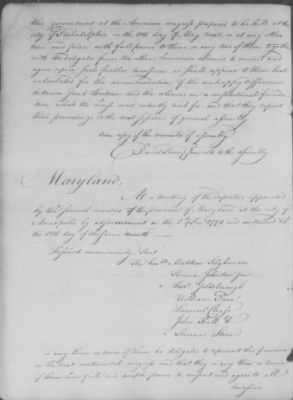 this government at the American congress proposed to be held at the
city of Philadelphia on the 10th day of May next, or at any other
time and place with full power to them or any two of them together
with the delegates from the other American colonies to concert and
agree upon such further measures, as shall appear to them best
calculated for the accommodation of the unhappy differences
between Great Britain and the colonies on a constitutional founda-
tion, which the house most ardently wish for, and that they report
their proceedings to the next sessions of general assembly.
true copy of the minutes of assembly
clk to the assembly
Maryland,
At a meeting of the deputies appointed
by the several counties of the province of Maryland at the city of
Annapolis by adjournment on the 1774 and continued till
the 12th day of the same month
Resolved unanimously That
The honble Matthew Tilghman
Thomas Johnson junr
Robt Goldsborough
William Paca
Samuel Chase
John Hall &
Thomas Stone
or any three or more of them be delegates to represent this province
in the next continental congress and that they or any three or more
of them have full and ample power to consent and agree to all
measures